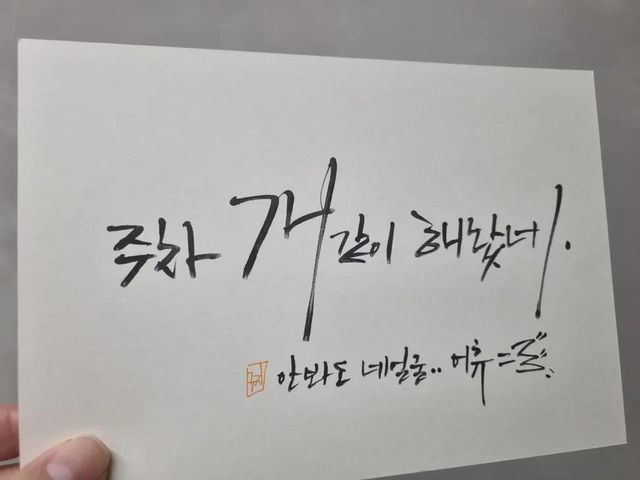 주차 개같이 해놨네.
안봐도 네얼굴.. 어휴 =3